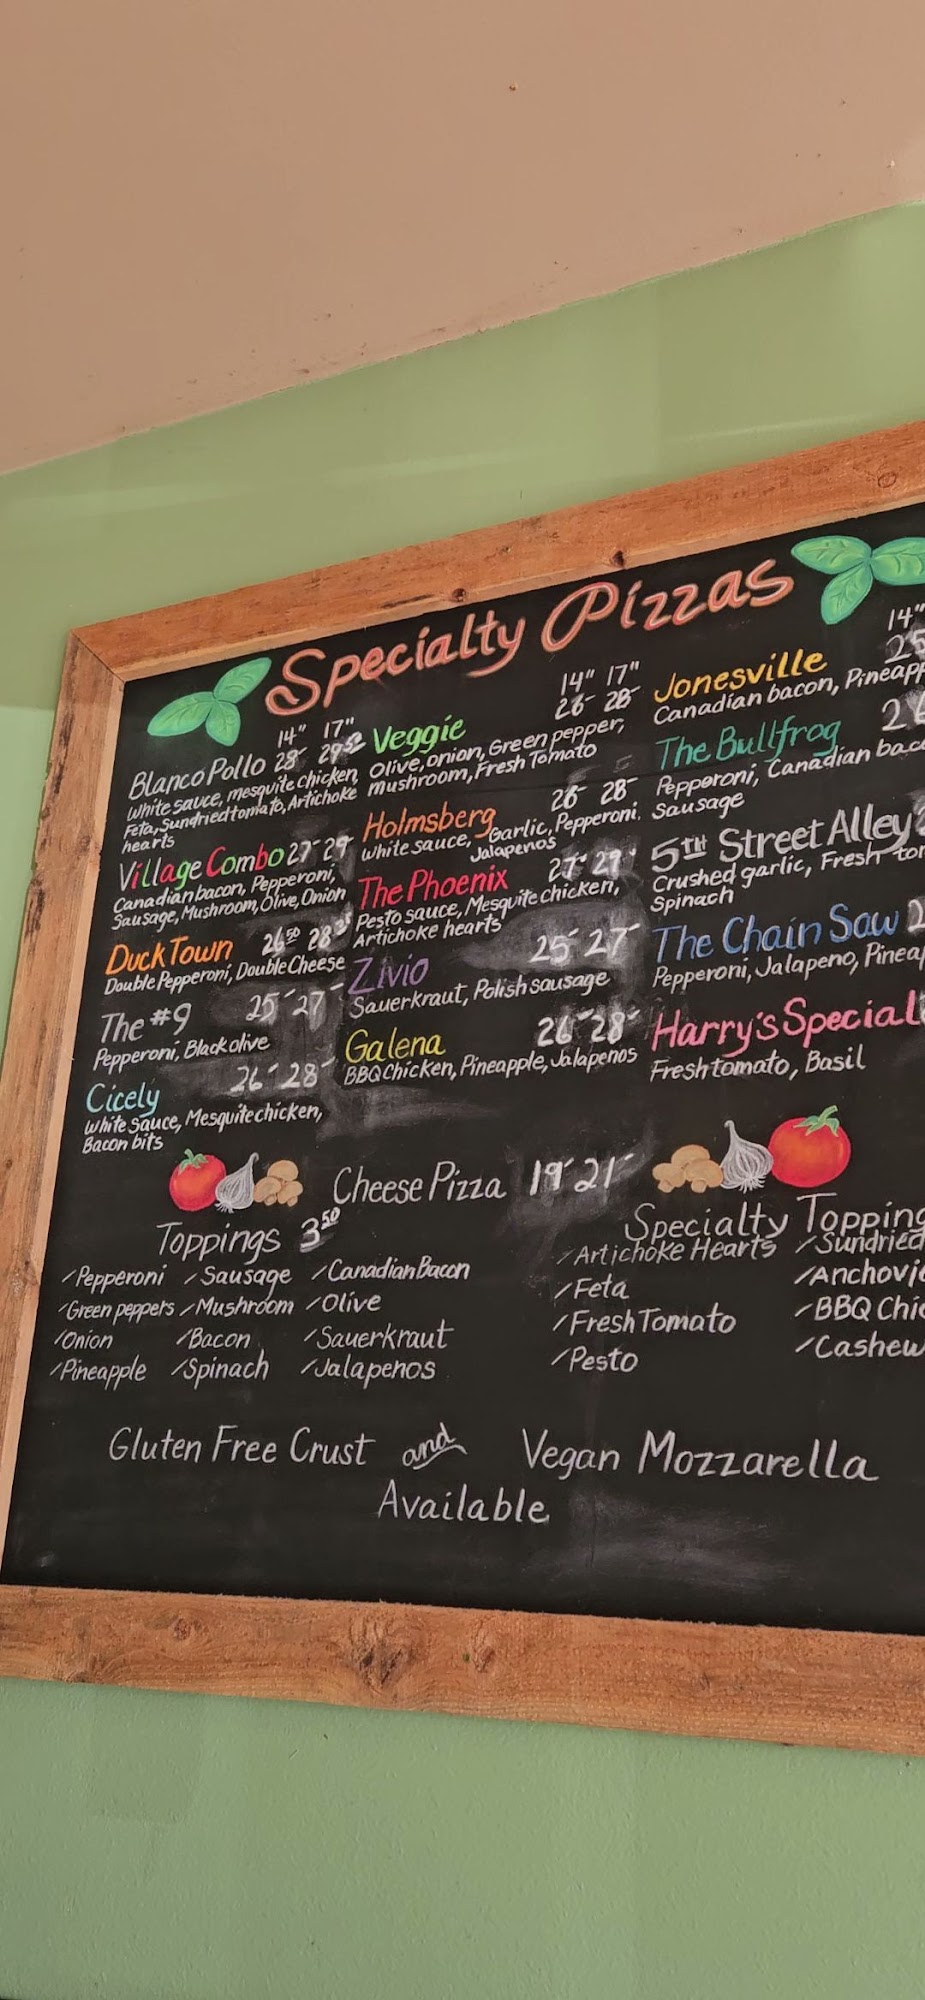 Specialty Pizzas
14" 17"
Blanco Pollo 28 29
White sauce, mesquite chicken
Feta, Sundried tomato, Artichoke
hearts
Village Combo 27 29
Canadian bacon, Pepperoni,
Sausage, Mushroom, Olive, Onion
Duck Town 26 50 28
Double Pepperoni, Double Cheese
The #9 25 27
Pepperoni, Black olive
Cicely 26 28
White Sauce, Mesquite chicken,
Bacon bits
14" 17"
Veggie 26 28
Olive, onion, Green pepper,
mushroom, Fresh Tomato
Holmsberg 26 28
White sauce, Garlic, Pepperoni.
Jalapenos
The Phoenix 27 29
Pesto sauce, Mesquite chicken,
Artichoke hearts
Zivio 25 27
Sauerkraut, Polish sausage
Galena 26 28
BBQ Chicken, Pineapple, Jalapenos
14"
Jonesville 25
Canadian bacon, Pineapp
The Bullfrog 26
Pepperoni, Canadian bac
Sausage
5TH Street Alley
Crushed garlic, Fresh tom
Spinach
The Chain Saw 2
Pepperoni, Jalapeno, Pineap
Harry's Special
Fresh tomato, Basil
Cheese Pizza 19 21
Toppings 3 50
/Pepperoni /Sausage /Canadian Bacon
/Green peppers /Mushroom /Olive
/Onion /Bacon /Sauerkraut
/Pineapple /Spinach /Jalapenos
Specialty Topping
/Artichoke Hearts /Sundried
/Feta /Anchovie
/Fresh Tomato /BBQ Chic
/Pesto /Cashew
Gluten Free Crust and Vegan Mozzarella
Available